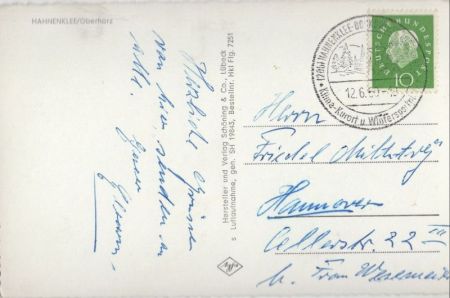 HAHNENKLEE/Oberharz
Herzliche Grüsse
von hier senden an
alle
Hersteller und Verlag Schöning & Co., Lübeck
s Luftaufnahme, gen. SH 19845, Bestellnr. Hkl Flg. 7251
HAHNENKLEE-BO
12.6.59
Klima-Kurort u. Wintersport
DEUTSCHE BUNDESPOST
10
Herrn
Friedel
Hannover
Cellerstr. 22 III
b. Frau